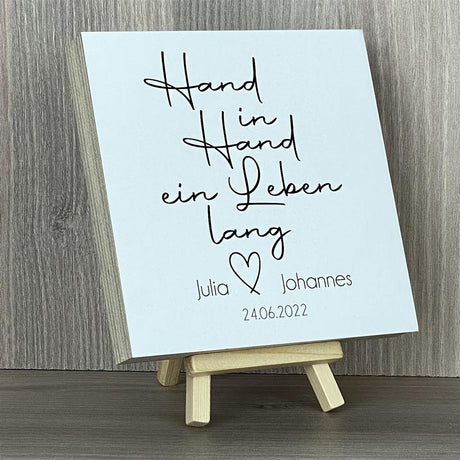 Hand
in
Hand
ein Leben
lang
Julia Johannes
24.06.2022